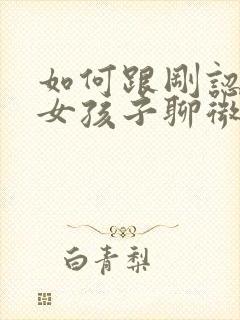 如何跟剛認
女孩子聊微
白青梨